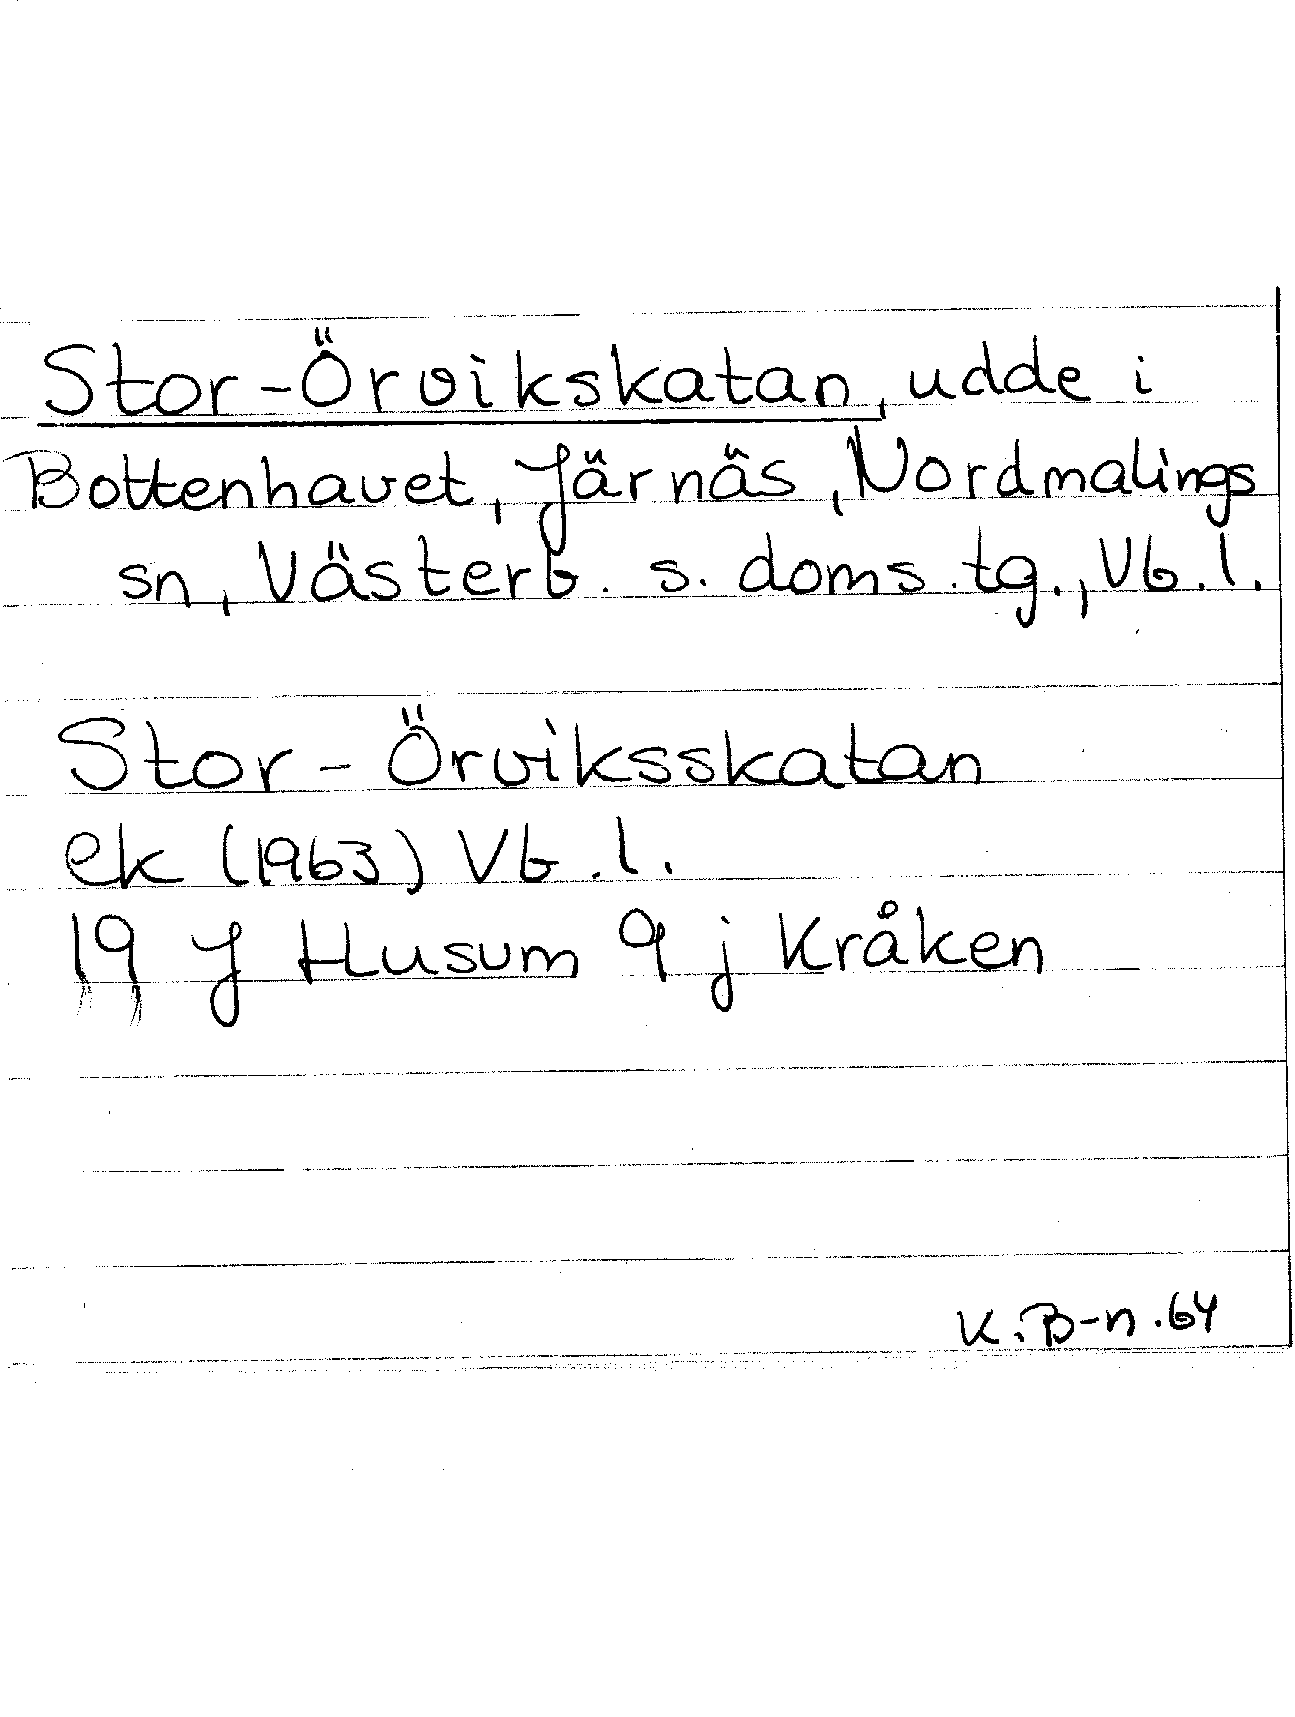 Stor-Örvikskatan, udde i
Bottenhavet, Järnäs, Nordmalings
sn, Västerb. s. doms.tg., Vb.l.
Stor-Örviksskatan
ek (1963) Vb.l.
19 J Husum 9 j Kråken
K.B-n.64